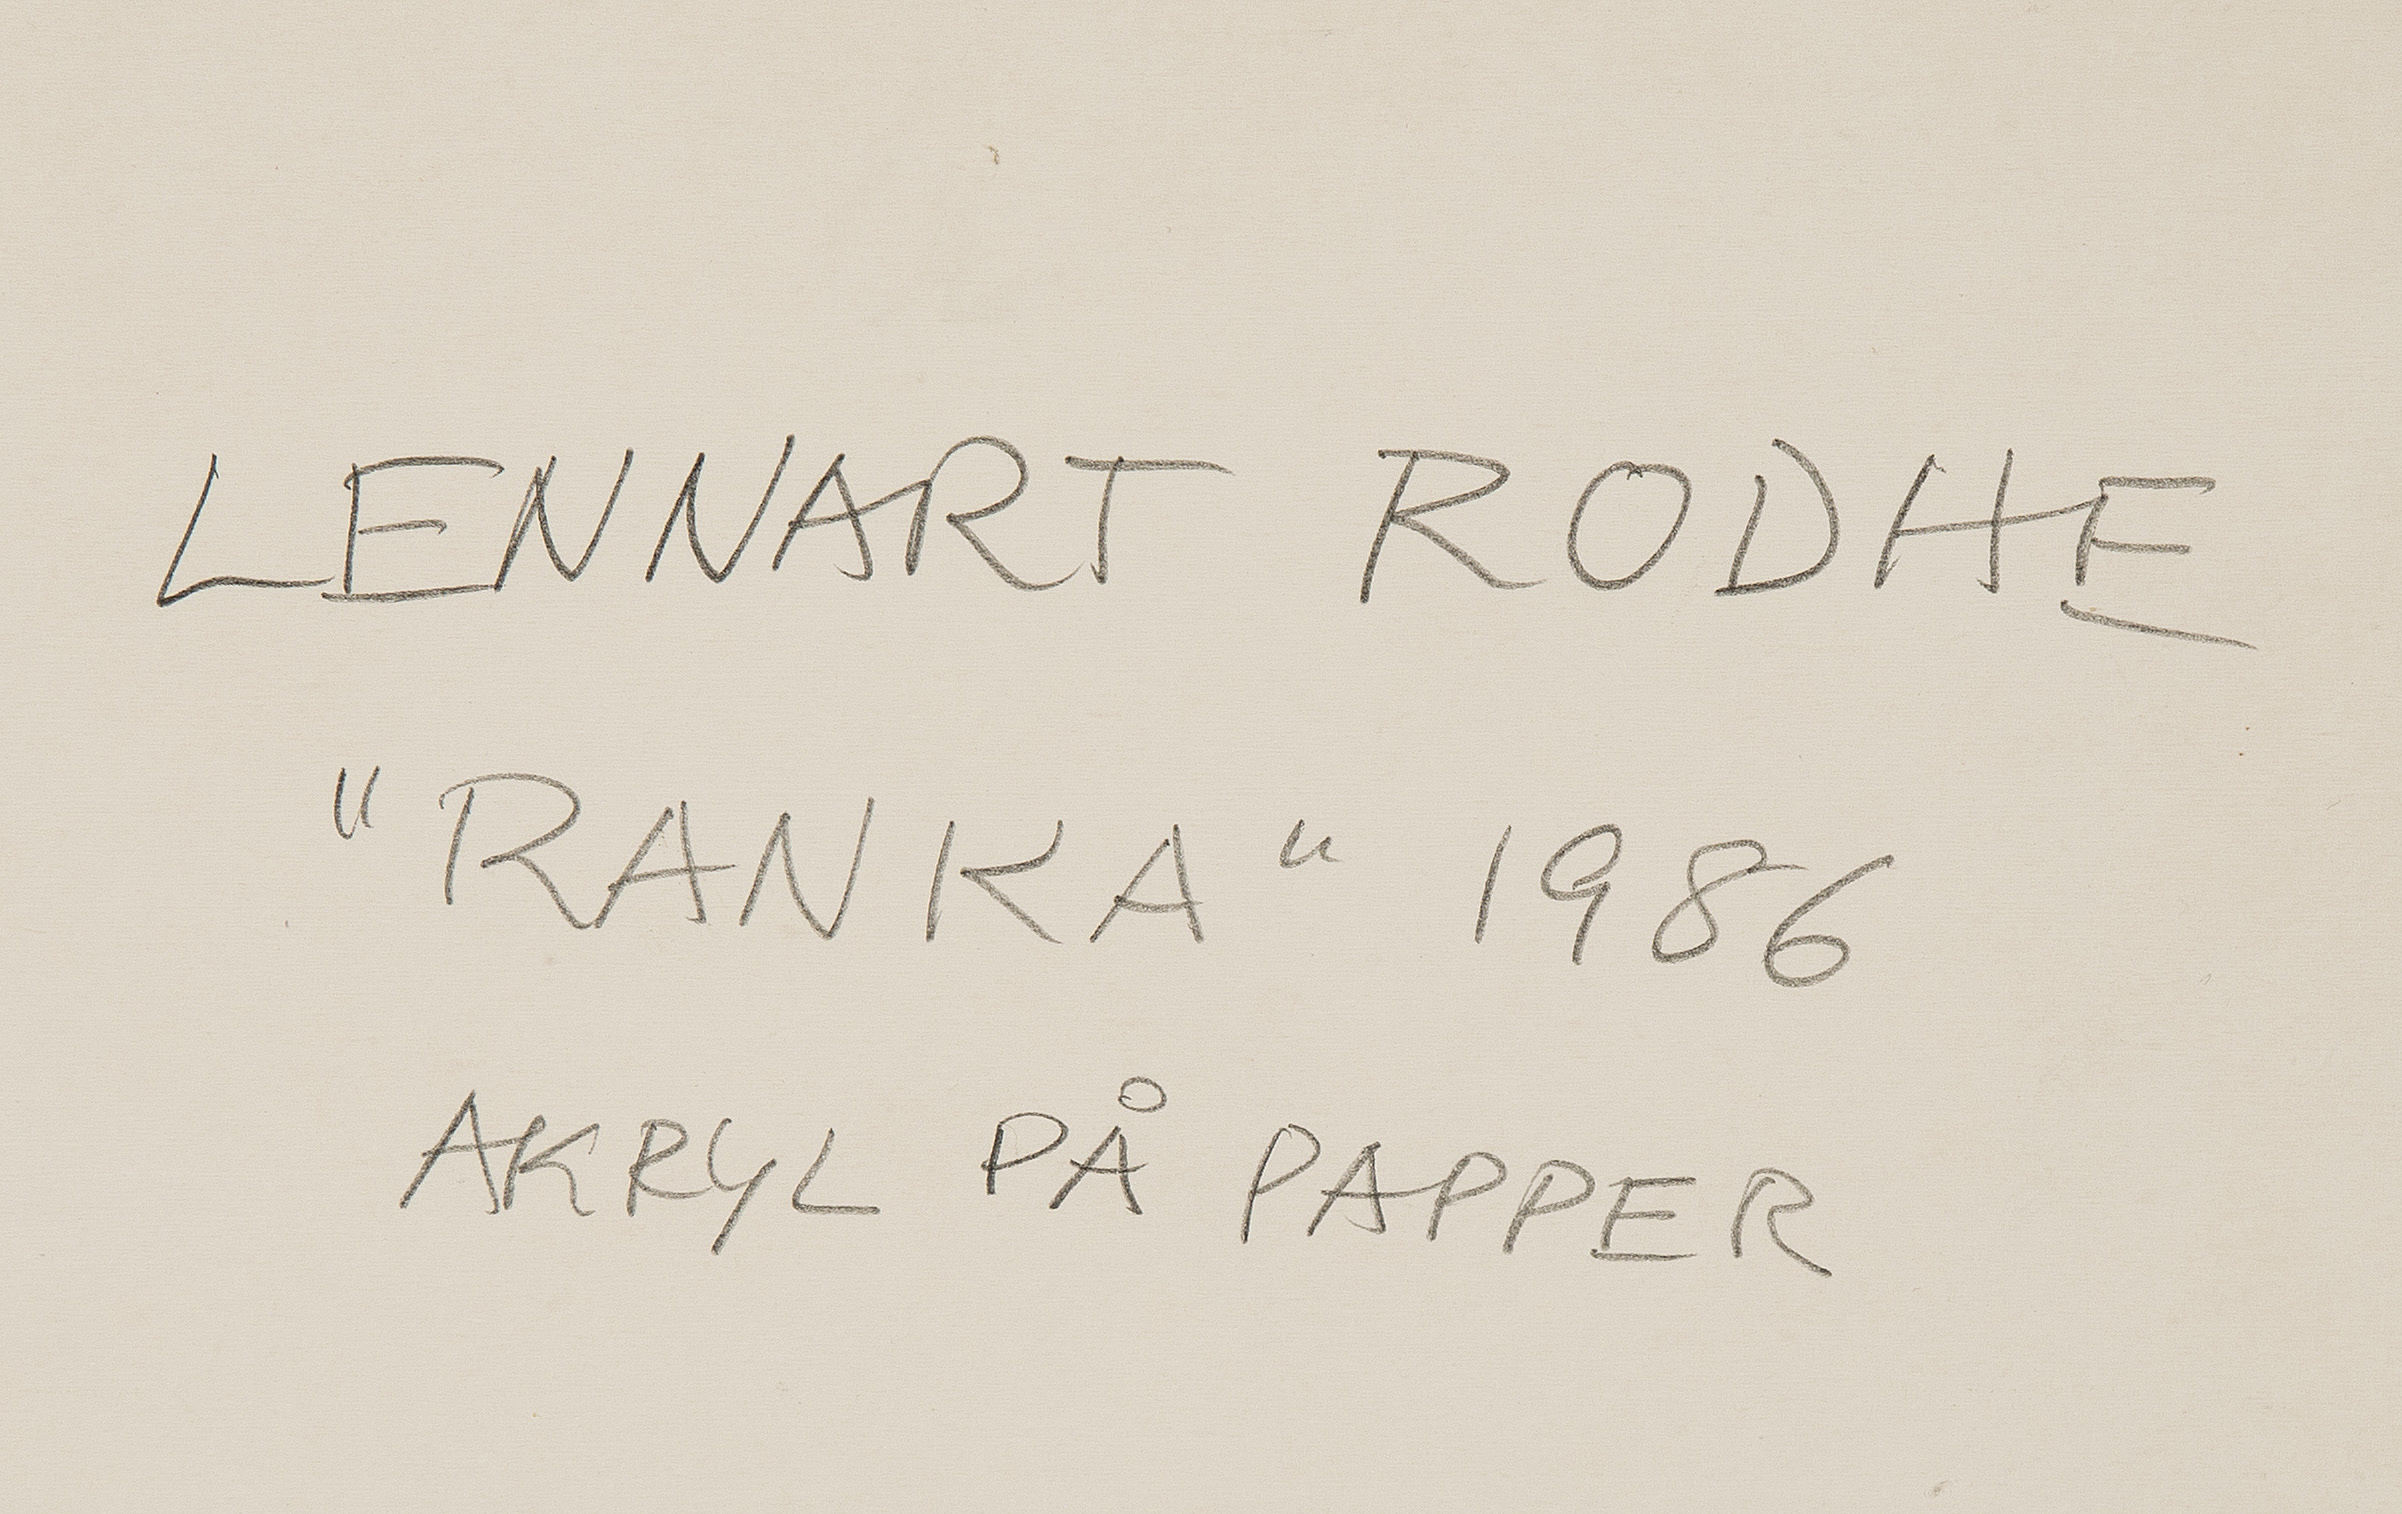 LENNART RODHE
"RANKA" 1986
AKRYL PÅ PAPPER